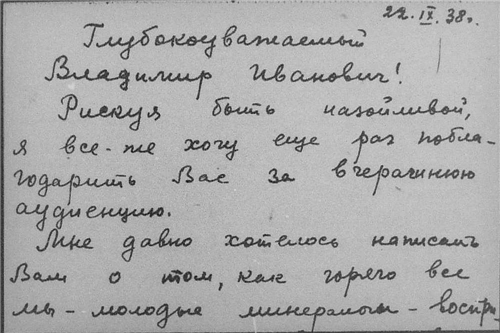 22.IX.38г.
Глубокоуважаемый
Владимир Иванович!
Рискуя быть назойливой,
я все-же хочу еще раз побла-
годарить Вас за вчерашнюю
аудиенцию.
Мне давно хотелось написать
Вам о том, как горячо все
мы - молодые минералоги - воспри